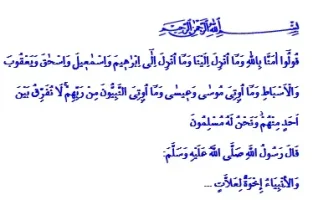 بِسْمِ اللهِ الرَّحْمٰنِ الرَّحِيمِ
قُولُوا آمَنَّا بِاللهِ وَمَا أُنْزِلَ إِلَيْنَا وَمَا أُنْزِلَ إِلَى إِبْرَاهِيمَ وَإِسْمَاعِيلَ وَإِسْحَقَ وَيَعْقُوبَ
وَالْأَسْبَاطِ وَمَا أُوتِيَ مُوسَى وَعِيسَى وَمَا أُوتِيَ النَّبِيُّونَ مِنْ رَبِّهِمْ لَا نُفَرِّقُ بَيْنَ
أَحَدٍ مِنْهُمْ وَنَحْنُ لَهُ مُسْلِمُونَ
قَالَ رَسُولُ اللهِ صَلَّى اللهُ عَلَيْهِ وَسَلَّمَ:
وَالْأَنْبِيَاءُ إِخْوَةٌ لِعَلَّاتٍ ...